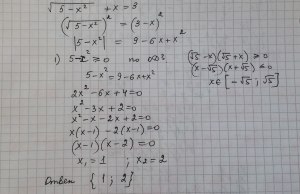 √(5-x²) + x = 3
(√(5-x²))² = (3-x)²
|5-x²| = 9-6x+x²
1) 5-x² ≥ 0 по ОДЗ
5-x² = 9-6x+x²
2x²-6x+4=0
x²-3x+2=0
x²-x-2x+2=0
x(x-1)-2(x-1)=0
(x-1)(x-2)=0
x₁=1 ; x₂=2
Ответ {1; 2}
(√5-x)(√5+x) ≥ 0
(x-√5)(x+√5) ≤ 0
x∈[-√5; √5]